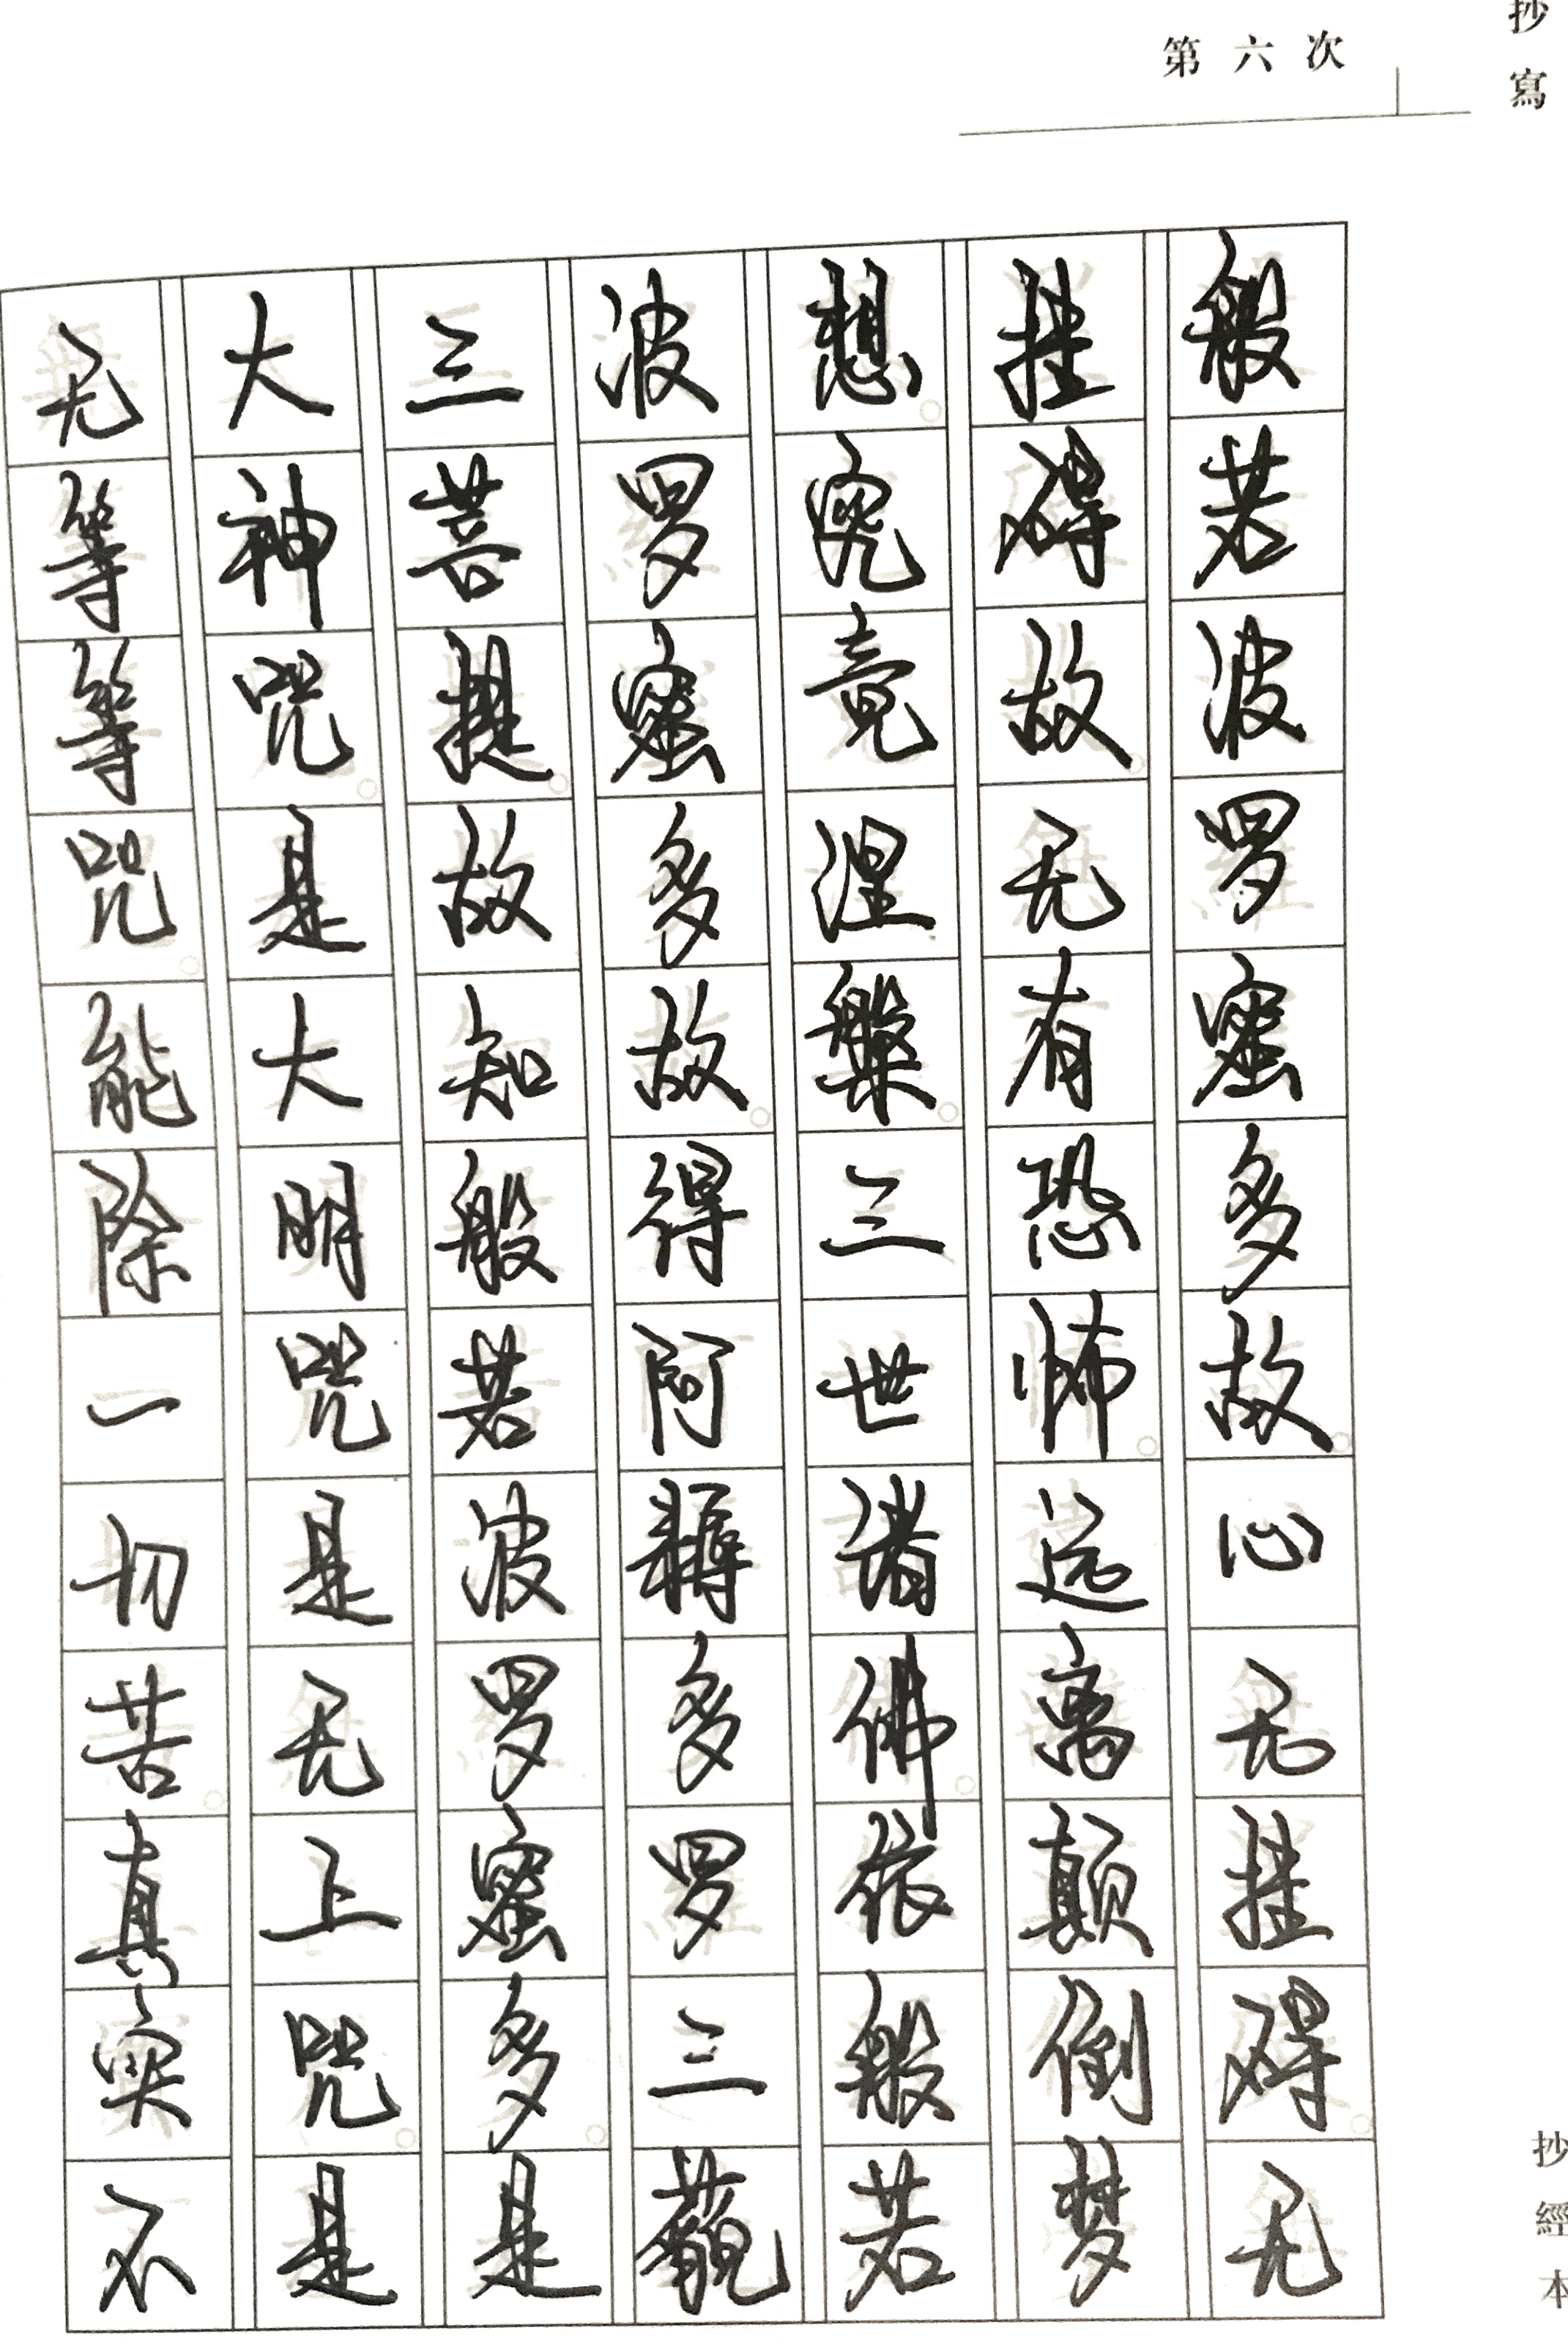 抄寫
第六次
般若波罗蜜多故心无挂碍无
挂碍故无有恐怖远离颠倒梦
想究竟涅槃三世诸佛依般若
波罗蜜多故得阿耨多罗三藐
三菩提故知般若波罗蜜多是
大神咒是大明咒是无上咒是
无等等咒能除一切苦真实不
抄經本